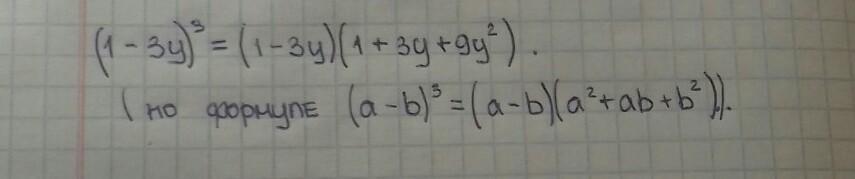 (1 - 3y)³ = (1 - 3y)(1 + 3y + 9y²).
(по формуле (a - b)³ = (a - b)(a² + ab + b²)).